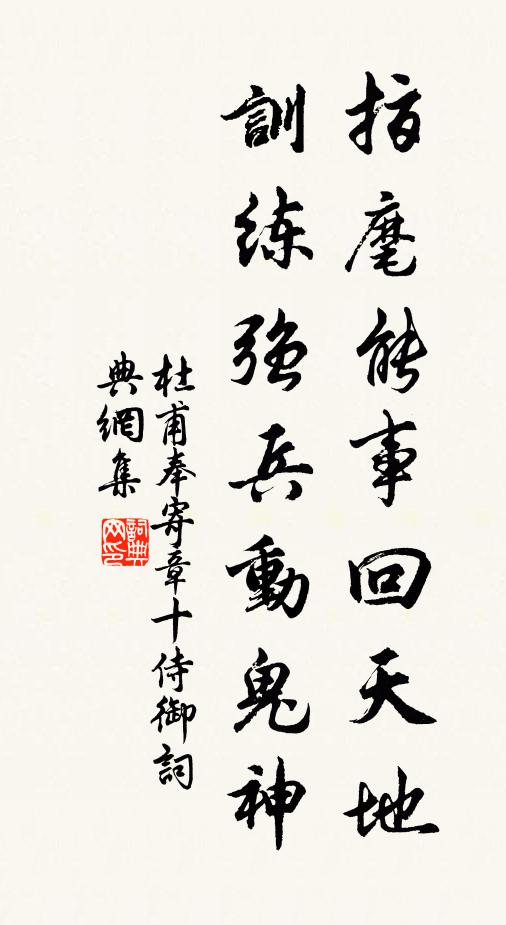 指麾能事回天地
訓練強兵動鬼神
杜甫奉寄章十侍御詞
典網集
詞典网印